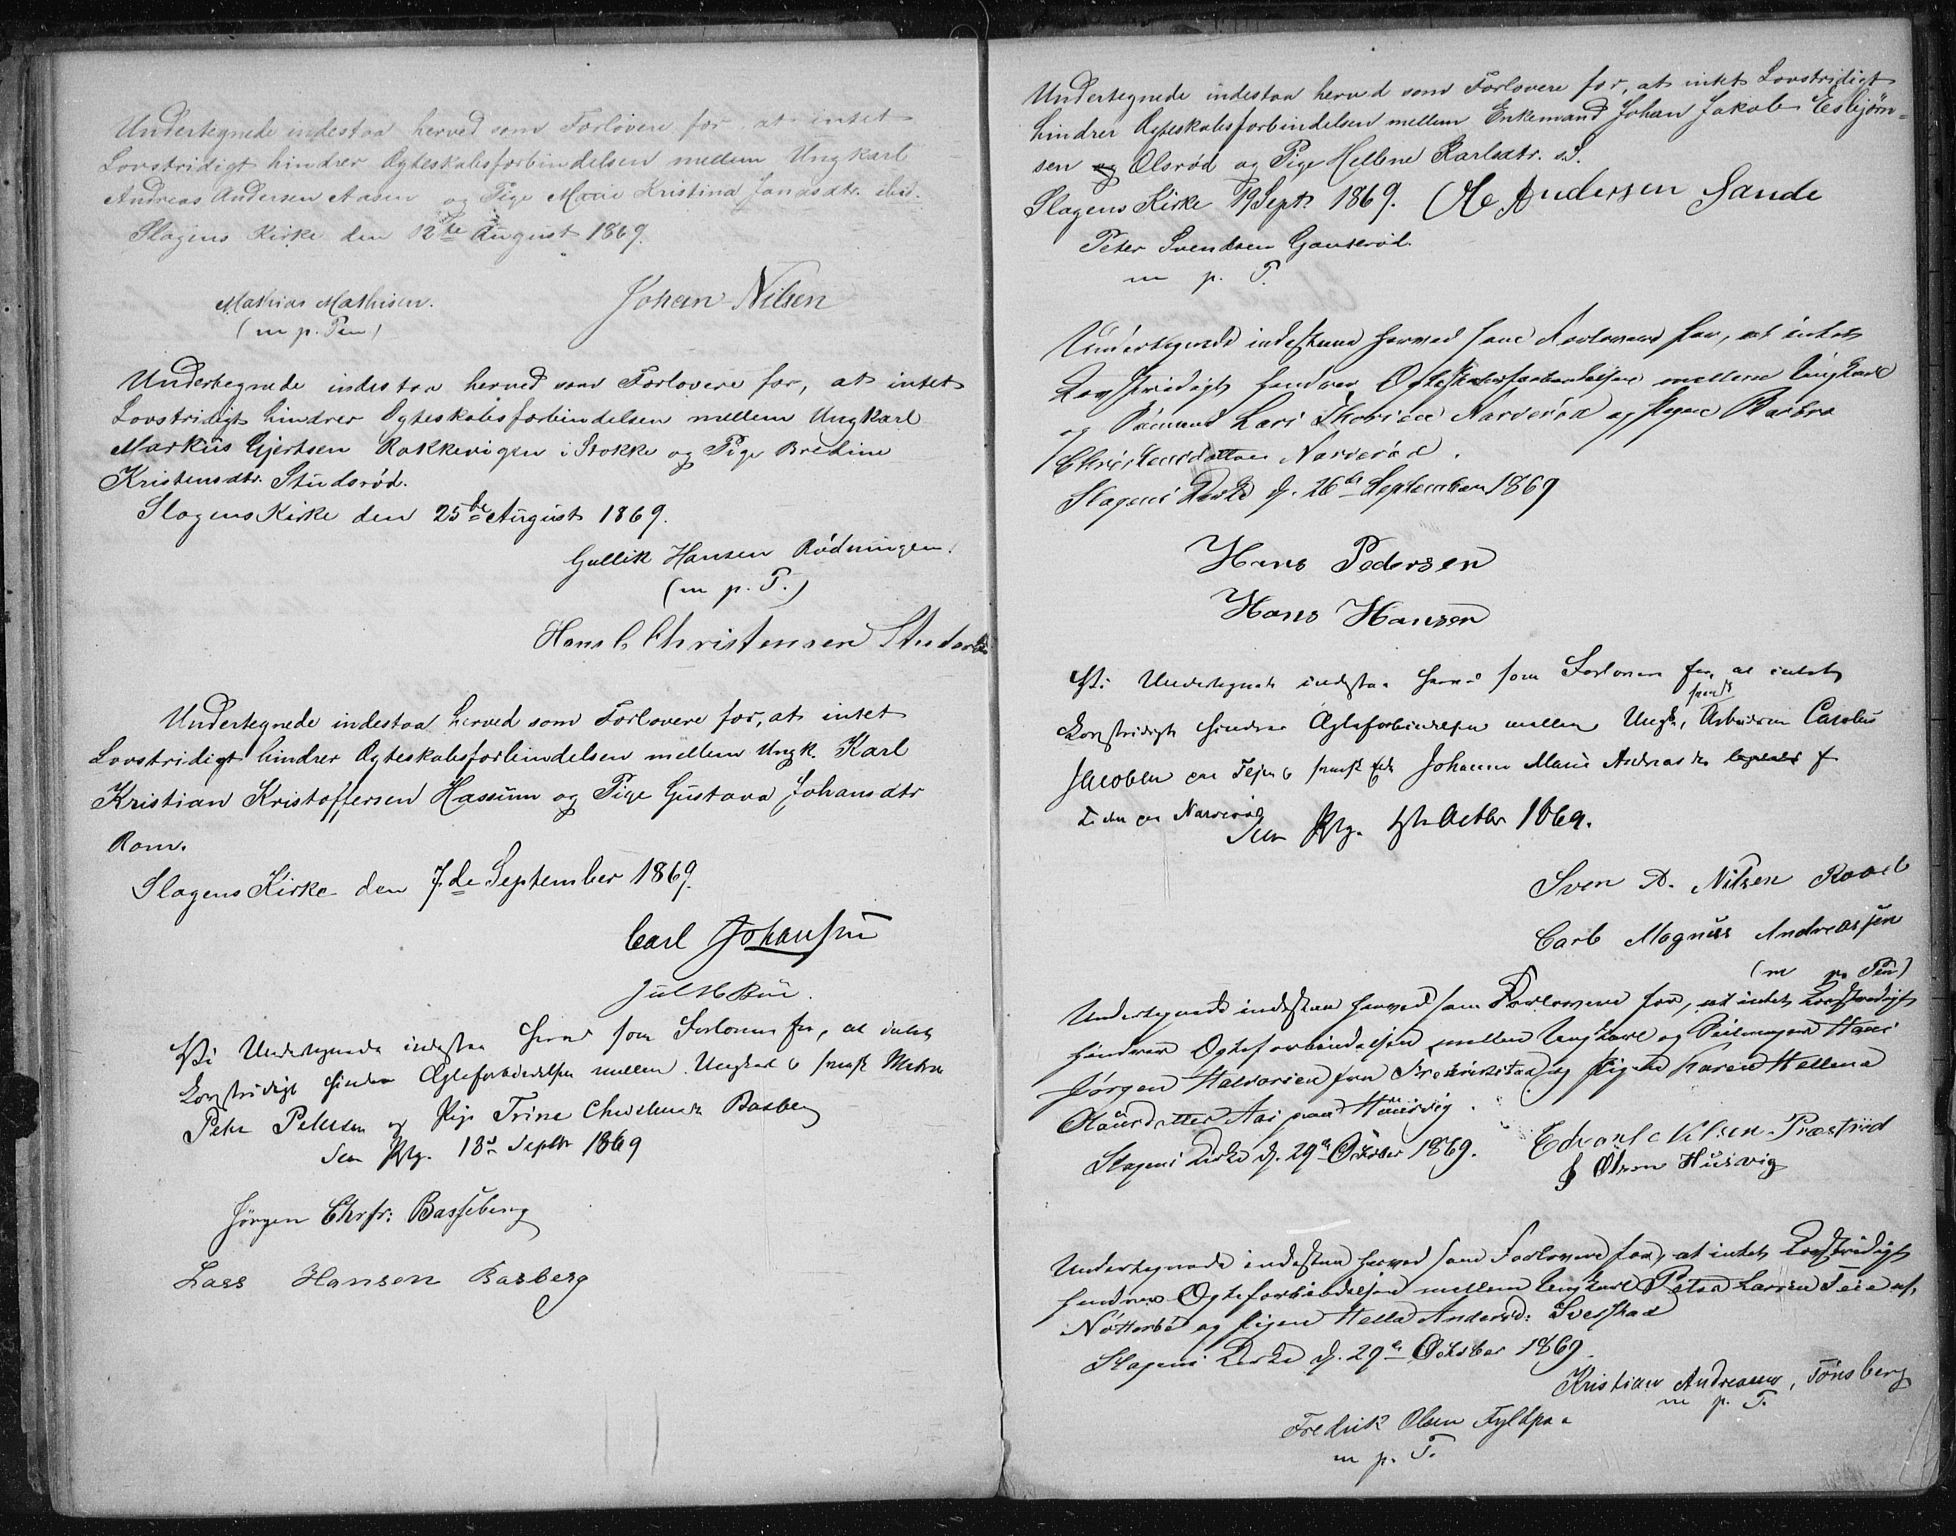 Undertegnede indestaa herved som Forlovere for at intet
Lovstridigt hindrer Ægteskabsforbindelsen mellem Ungkarl
Andreas Andersen Aasen og Pige Marie Kristina Jonasdtr. ibid.
Slagens Kirke den 12te August 1869.
Mathias Mathisen. Johan Nilsen
(m p. Pen)
Undertegnede indestaa herved som Forlovere for, at intet
Lovstridigt hindrer Ægteskabsforbindelsen mellem Ungkarl
Markus Gjertsen Rakkevigen i Stokke og Pige Bredine
Kristensdtr. Studsrød.
Slagens Kirke den 25de August 1869.
Gullik Hansen Rødningen.
(m p. P.)
Hans C Christensen
Undertegnede indestaa herved som Forlovere for, at intet
Lovstridigt hindrer Ægteskabsforbindelsen mellem Ungk. Karl
Kristian Kristoffersen Hassum og Pige Gustava Johansdtr
Rom.
Slagens Kirke den 7de September 1869.
Carl Johansen
Jul
Vi Undertegnede indestaa herved som Forlovere for, at intet
Lovstridigt hindrer Ægteforbindelsen mellem Ungkarl Matros
Peter Petersen og Pige Trine Basberg
Sem Prstg. 18de Septbr 1869
Jørgen Chrfr: Basseberg
Lars Hansen Basberg
Undertegnede indestaa herved som Forlovere for, at intet Lovstridigt
hindrer Ægteskabsforbindelsen mellem Enkemand Johan Jakob Esbjørn-
sen og Olsrød og Pige Hellene Karlsdtr. s.S.
Slagens Kirke 19 Sept. 1869. A Andersen Sande
Peter Svendsen Gauserød.
m p. P.
Undertegnede indestaa herved som Forlovere for, at intet
Lovstridigt hindrer Ægteskabsforbindelsen mellem Ungkarl
og Sømand Lars Narverød og Pigen Barbra
Christensdatter Narverød.
Slagens Kirke d. 26de September 1869
Hans Pedersen
Hans Hansen
Vi Undertegnede indestaa herved som Forlovere for, at intet
Lovstridigt hindrer Ægteforbindelsen mellem Ungk, Arbeideren Carolus
Jacobsen paa Johanne Marie
paa Narverød
Sem Prstg. Octbr 1869.
Sven A. Nilsen Raael
Carl Magnus Andreassen
(m p. Pen)
Undertegnede indestaa herved som Forlovere for, at intet Lovstridigt
hindrer Ægteforbindelsen mellem Ungkarl og Seilmager Hans
Jørgen Halvorsen fra Frederikstad og Pigen Karen Hellena
Olausdatter Aas paa Husvig.
Slagens Kirke d. 29de Oktober 1869. Edvard Nilsen Præstrød
Olsen Husvig
Undertegnede indestaa herved som Forlovere for, at intet Lovstridigt
hindrer Ægteforbindelsen mellem Ungkarl Petter Larsen Teie af
Nøtterø og Pigen Hella Andersd:
Slagens Kirke d. 29de Oktober 1869.
Kristian Andreasen, Tønsberg
m p. P.
Fredrik Olsen Fyldpaa
m p. P.